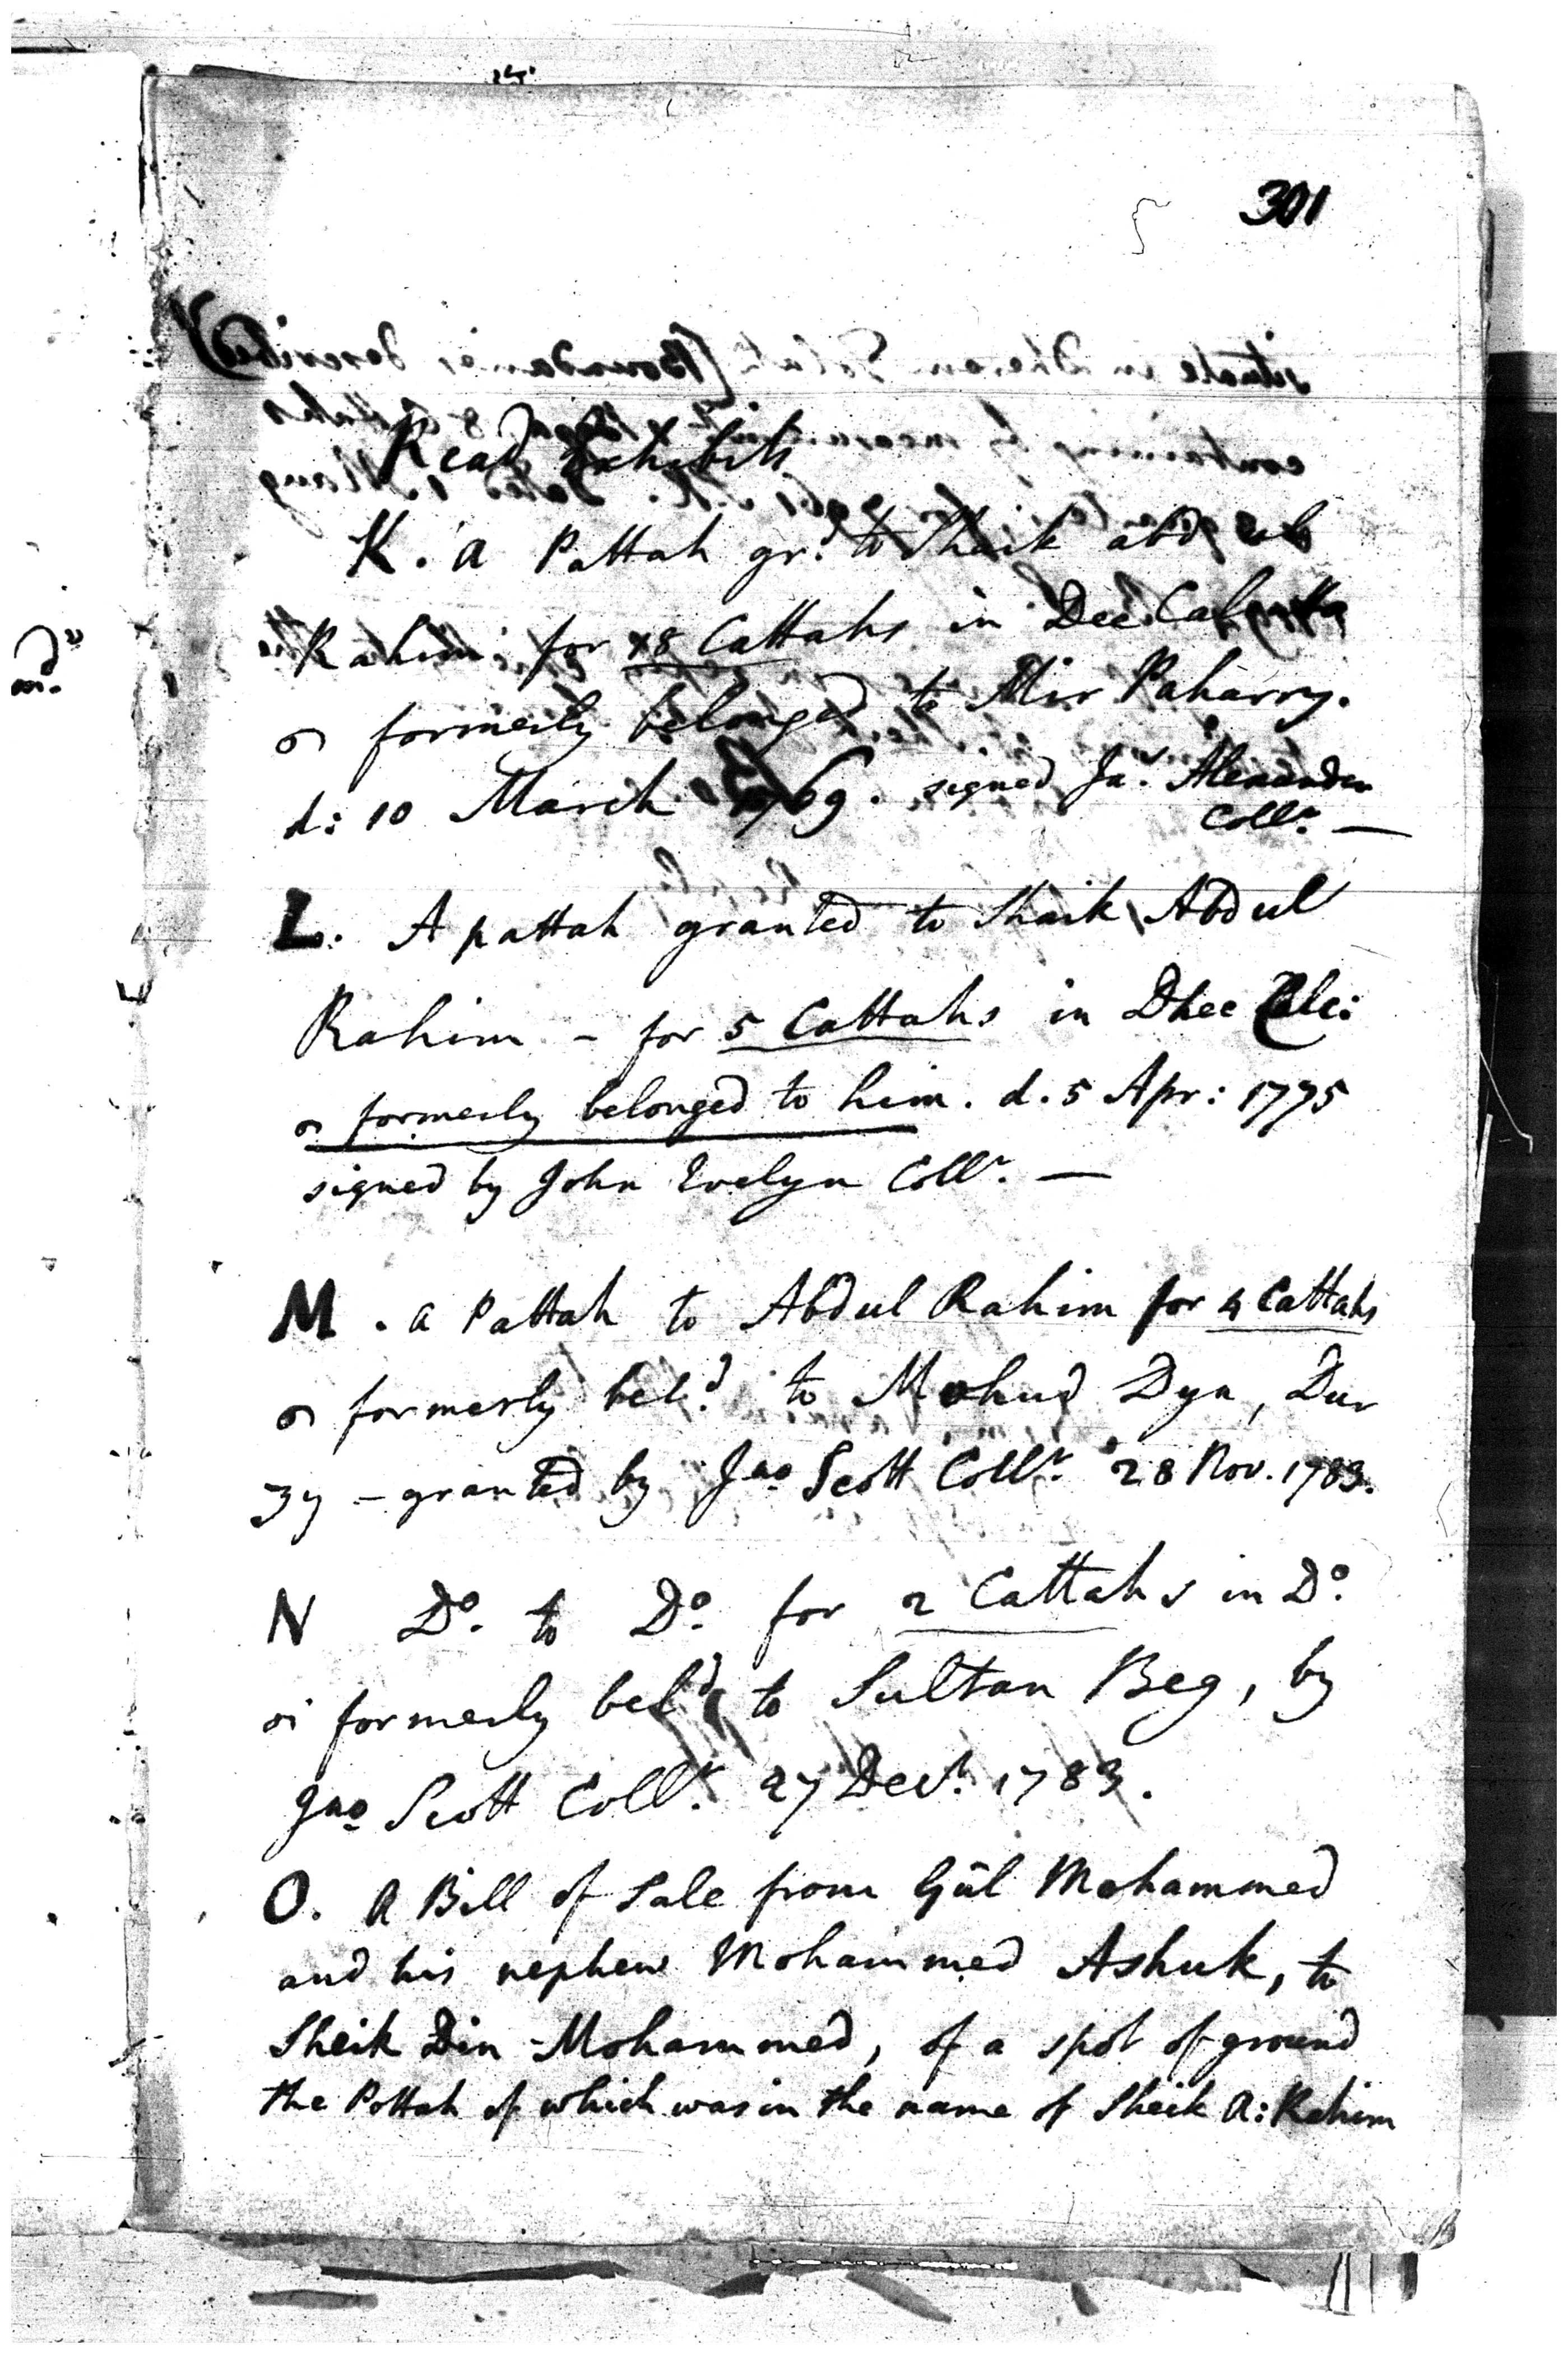 301
Read Exhibits
K. a Pattah gr.d to Shaik abd ul
Rahim for 18 Cattahs in Dee Calcutta
formerly belonged to Mir Paharry.
d: 10 March 1769. signed Ja.s Alexander
Coll.r —
L. A pattah granted to Shaik Abdul
Rahim – for 5 Cattahs in Dhee Calc:
formerly belonged to him. d. 5 Apr: 1775
signed by John Evelyn Coll.r —
M. a Pattah to Abdul Rahim for 4 Cattahs
formerly bel.d to Mohud Dyn, Dur
zy – granted by Jno Scott Coll.r 28 Nov. 1783.
N Do. to Do. for 2 Cattahs in Do.
formerly bel.d to Sultan Beg, by
Jno Scott Coll.r 27 Decr. 1783.
O. A Bill of Sale from Gûl Mohammed
and his nephew Mohammed Ashuk, to
Sheik Din-Mohammed, of a spot of ground
the Pottah of which was in the name of Sheik A: Rahim